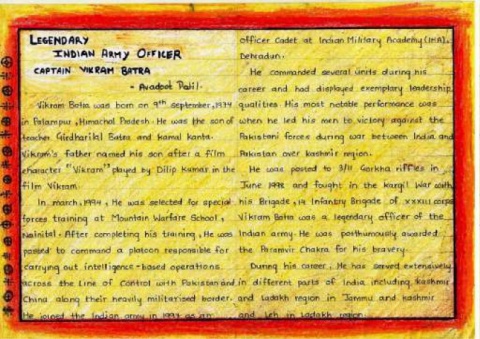 LEGENDARY
INDIAN ARMY OFFICER
CAPTAIN VIKRAM BATRA
- Avadoot Patil.
Vikram Batra was born on 9th september, 1974
in Palampur, Himachal Pradesh. He was the son of
teacher Girdharilal Batra and kamal kanta.
Vikram's father named his son after a film
character "Vikram" played by Dilip Kumar in the
film Vikram.
In march, 1994, He was selected for special
forces training at Mountain Warfare School,
Nainital. After completing his training, He was
posted to command a platoon responsible for
carrying out intelligence-based operations
across the Line of Control with Pakistan and
China along their heavily militarised border.
He joined the Indian army in 1997 as an
officer Cadet at Indian Military Academy (IMA),
Dehradun.
He commanded several units during his
career and had displayed exemplary leadership
qualities. His most notable performance was
when he led his men to victory against the
Pakistani forces during war between India and
Pakistan over kashmir region.
He was posted to 3/11 Gorkha riffles in
June 1998 and fought in the kargil War with
his Brigade, 14 Infantry Brigade of XXXIII corps
Vikram Batra was a legendary officer of the
Indian army. He was posthumously awarded
the Paramvir Chakra for his bravery.
During his career, He has served extensively
in different parts of India including kashmir
and Ladakh region in Jammu and kashmir
and Leh in Ladakh region.